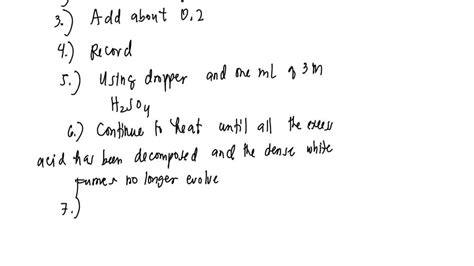 3.) Add about 0.2
4.) Record
5.) Using dropper and one mL of 3 M
H2SO4
6.) Continue to heat until all the excess
acid has been decomposed and the dense white
fumes no longer evolve
7.)